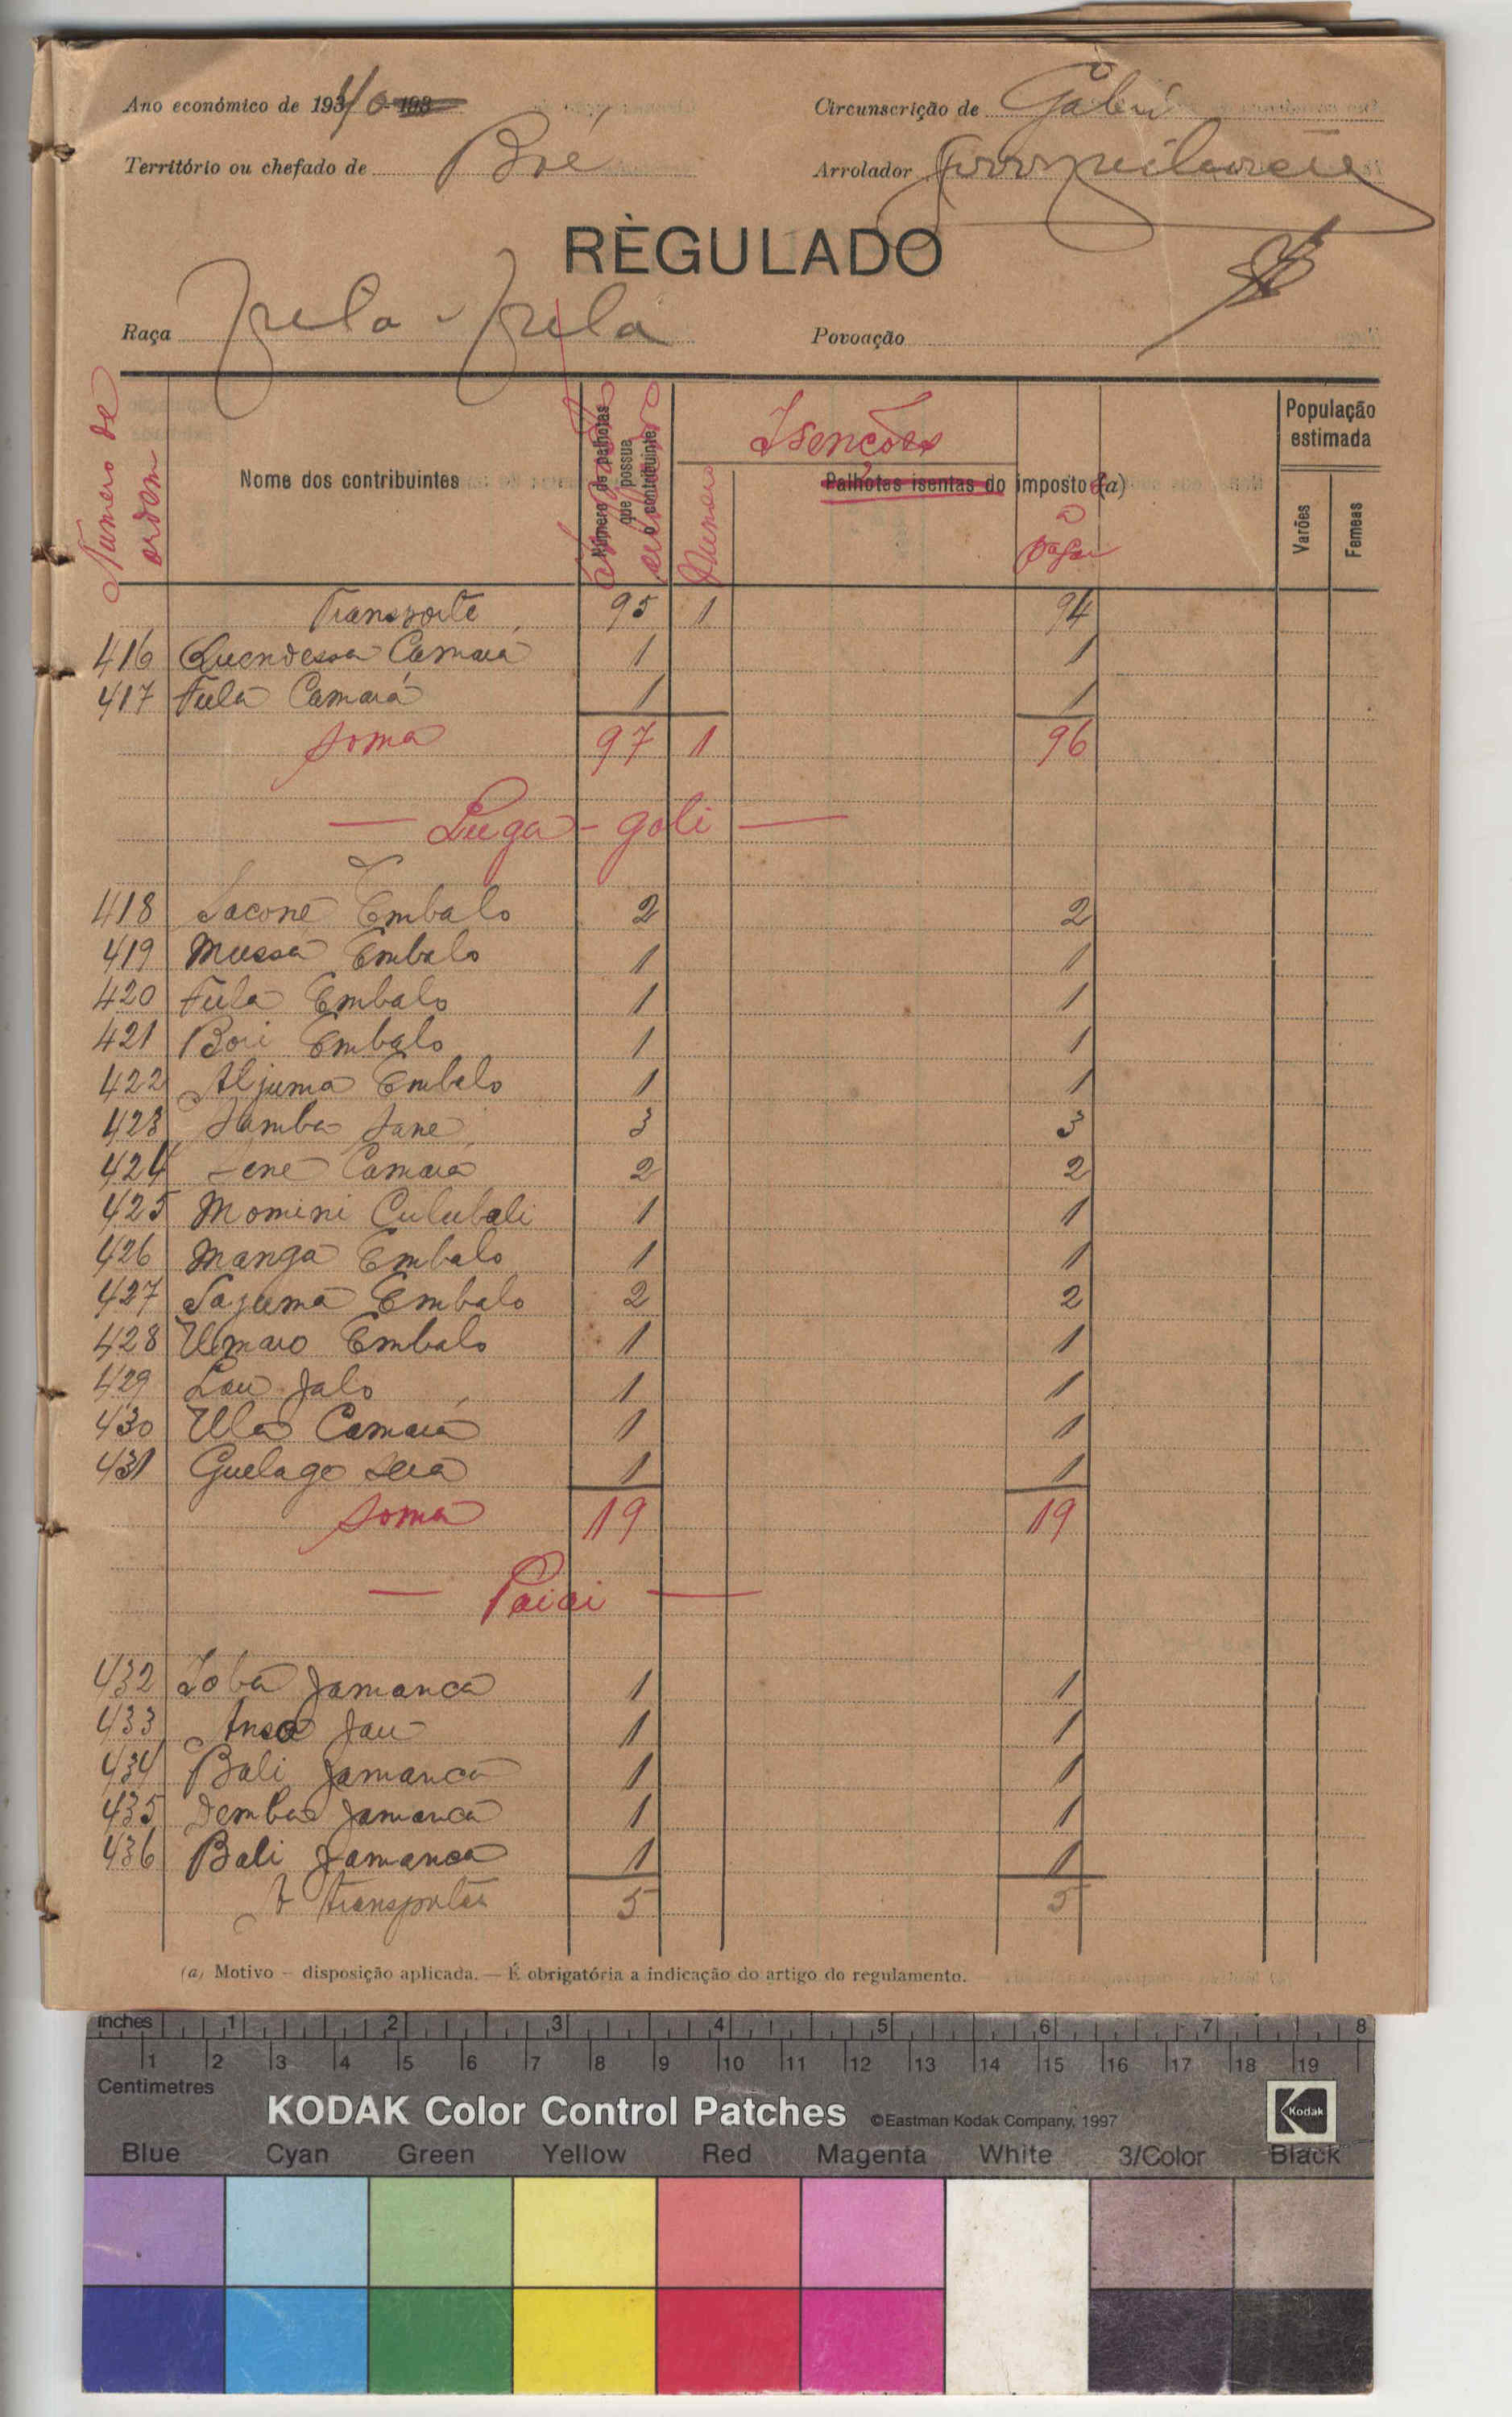 Ano económico de 1940
Circunscrição de Gabú
Território ou chefado de Boé
Arrolador
RÈGULADO
Raça Fula-Fula
Povoação
Número de ordem
Nome dos contribuintes
Número de palhotas que possue o contribuinte
Isenções
Número
Palhotas isentas do imposto (a)
a pagar
População estimada
Varões
Femeas
Transporte 95 1 94
416 Quendessa Camará 1 1
417 Fula Camará 1 1
Soma 97 1 96
— Luga-goli —
418 Sacone Embalo 2 2
419 Mussa Embalo 1 1
420 Fula Embalo 1 1
421 Boi Embalo 1 1
422 Aljuma Embalo 1 1
423 Samba Sane 3 3
424 Sene Camará 2 2
425 Momini Culubali 1 1
426 Manga Embalo 1 1
427 Sajuma Embalo 2 2
428 Umaro Embalo 1 1
429 Lau Jalo 1 1
430 Ula Camará 1 1
431 Guelago Sera 1 1
Soma 19 19
— Paiai —
432 Ioba Jamanca 1 1
433 Ansa Jau 1 1
434 Bali Jamanca 1 1
435 Demba Jamanca 1 1
436 Bali Jamanca 1 1
A transportar 5 5
(a) Motivo – disposição aplicada. — É obrigatória a indicação do artigo do regulamento.
inches 1 2 3 4 5 6 7 8
1 2 3 4 5 6 7 8 9 10 11 12 13 14 15 16 17 18 19
Centimetres
KODAK Color Control Patches ©Eastman Kodak Company, 1997 Kodak
Blue Cyan Green Yellow Red Magenta White 3/Color Black